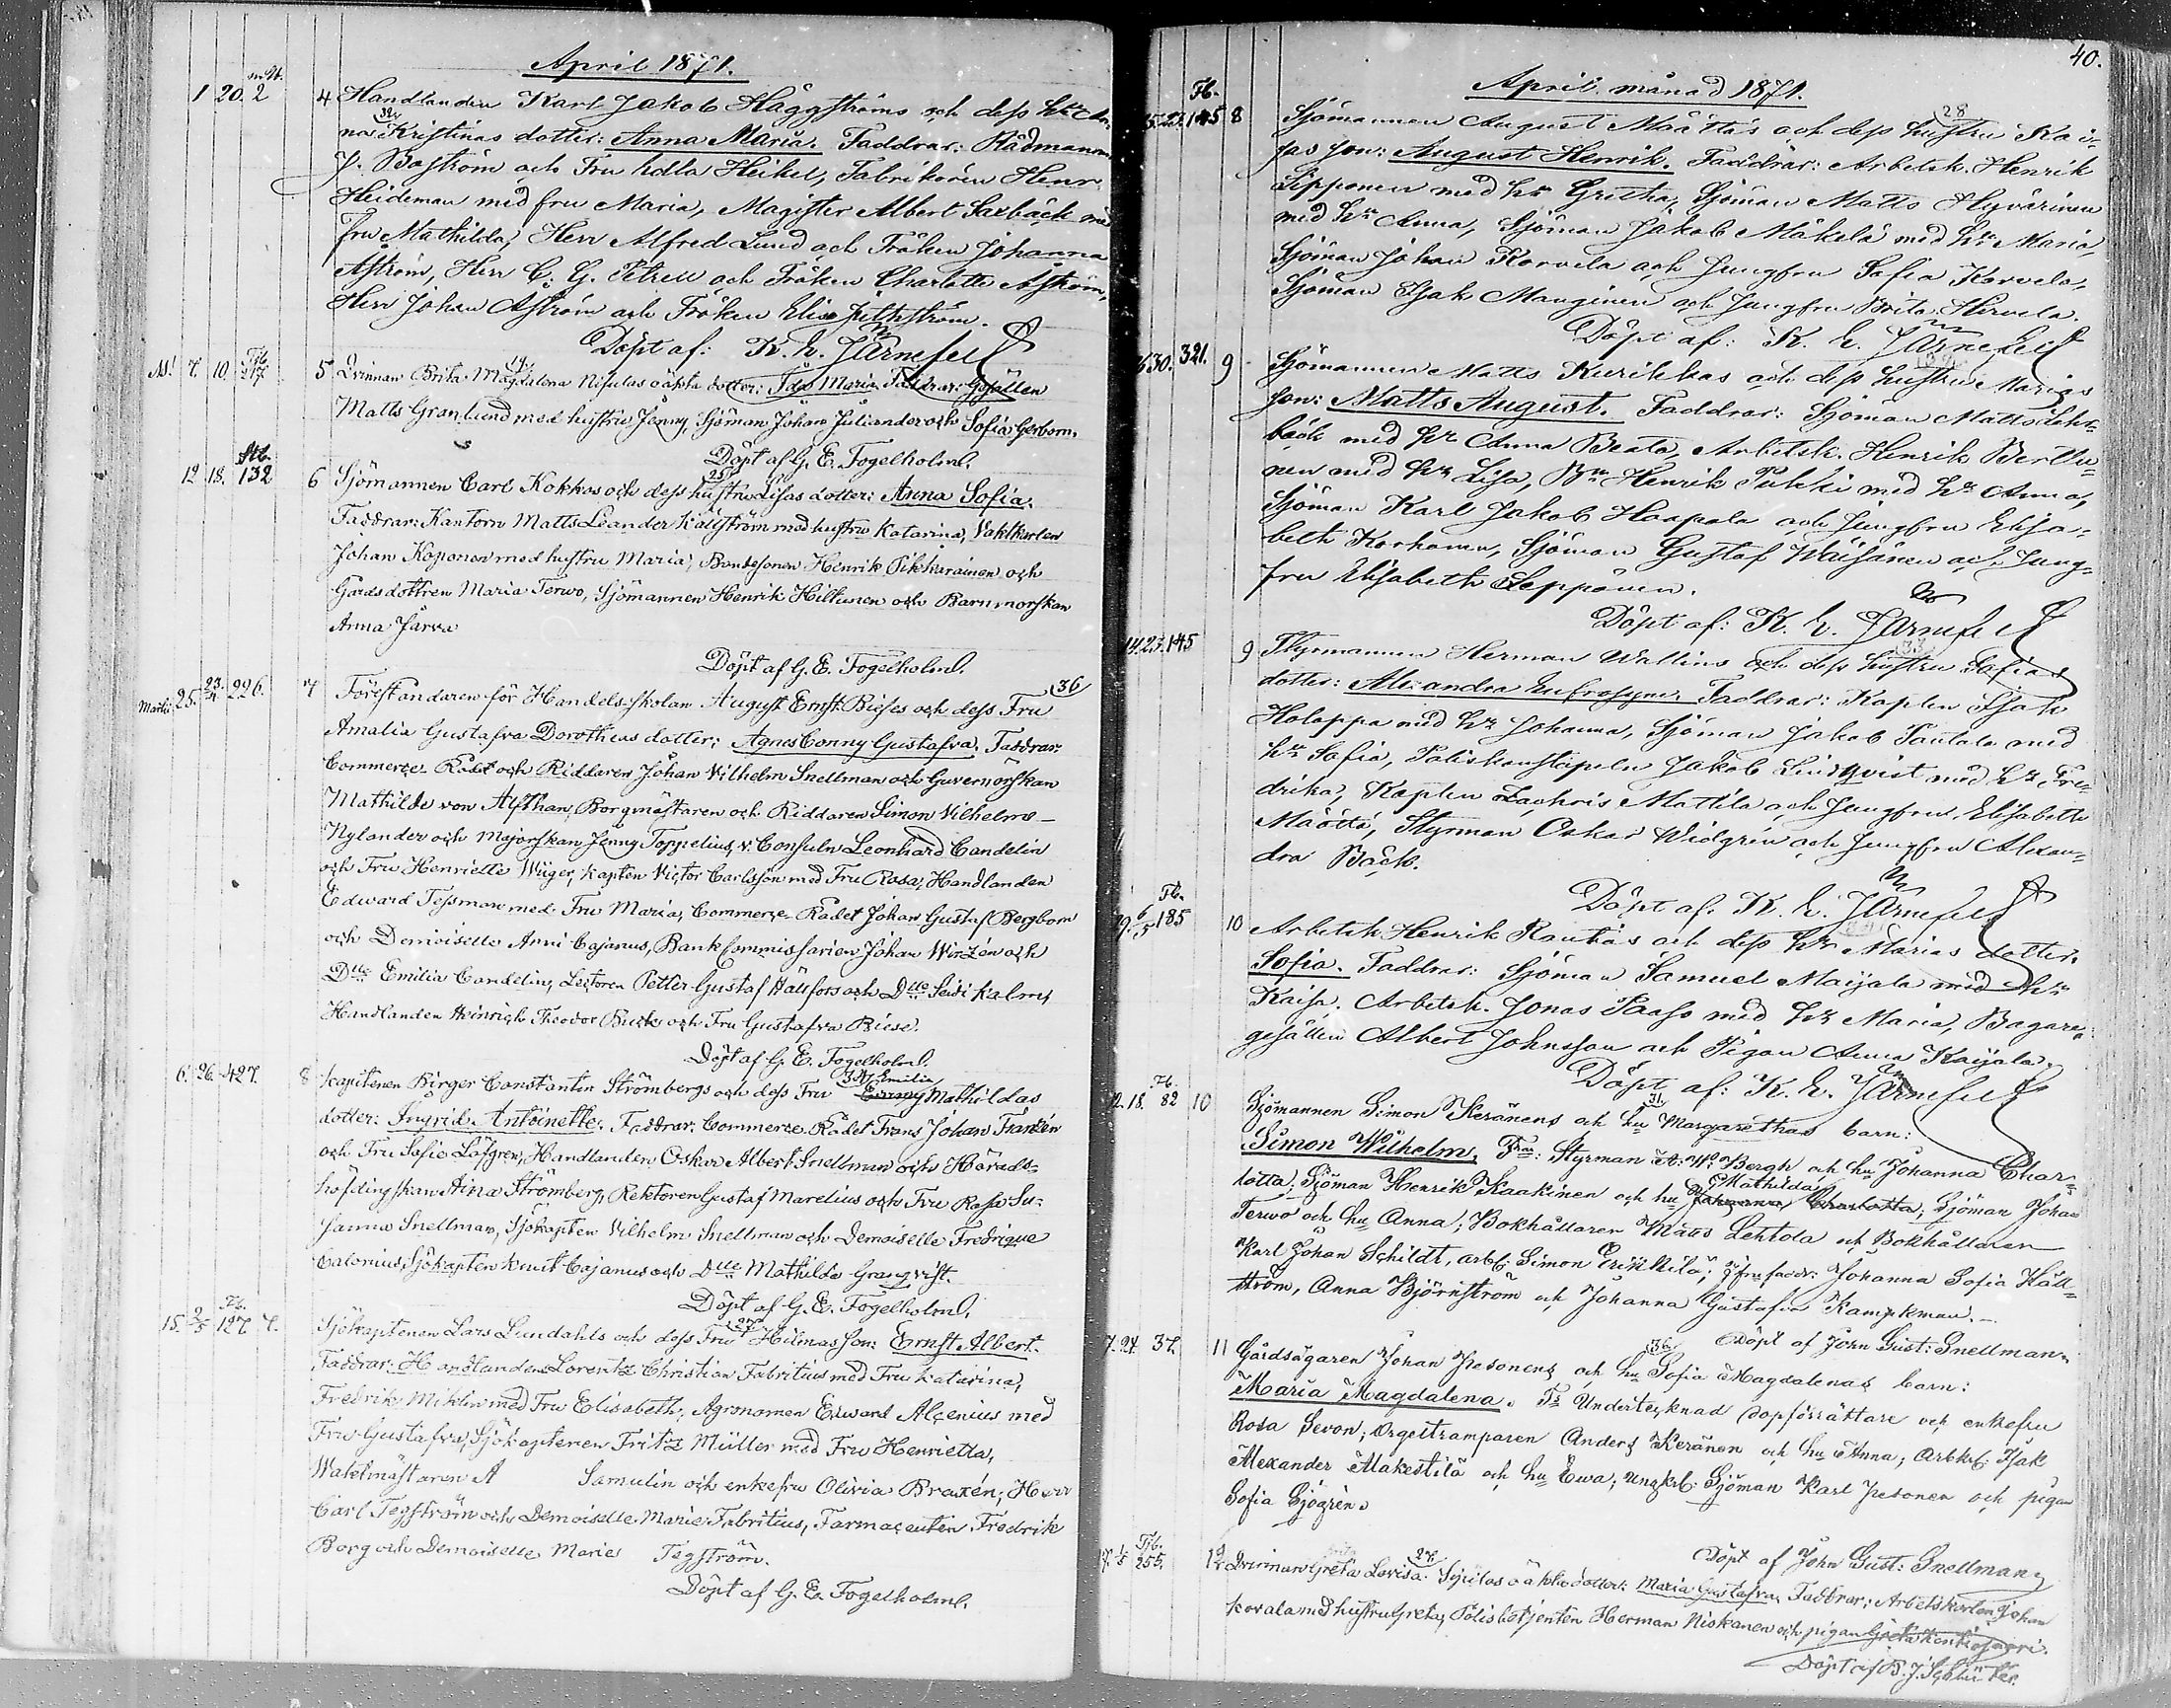 April 1871.
1 20. 2 4 Handlanden Karl Jakob Häggströms och dess hu An-
32
na Kristinas dotter: Anna Maria. Faddrar: Rådmannen
J. Boström och Fru Edla Heikel, Fabrikören Henr.
Heideman med fru Maria, Magister Albert Saxbäck med
fru Mathilda, Herr Alfred Lund och Fröken Johanna
Åström, Herr C. G. Petrell och Fröken Charlotte Åström,
Herr Johan Åström och Fröken Elise
Döpt af: K. E. Järnefelt
7. 10. 217 5 Qvinnan Brita Magdalena oäkta dotter: Ida Maria. Faddrar: Gesällen
19
Matts Granlund med hustru Jenny, Sjöman Johan Juliander och Sofia Gerbom.
Döpt af G. E. Fogelholm.
12 18. 132 6 Sjömannen Carl Kokkos och dess hustru Lisas dotter: Anna Sofia.
25
Faddrar: Kantorn Matts Leander Källström med hustru Katarina, Vaktkarlen
Johan Koponen med hustru Maria, Bondesonen Henrik Pikkarainen och
Gårdsdottren Maria Terwo, Sjömannen Henrik Hiltunen och Barnmorskan
Anna Järva
Döpt af G. E. Fogelholm.
Martii 25. 23/4 226. 7 Föreståndaren för Handelsskolan August Ernst Bieses och dess Fru
36
Amalia Gustafva Dorotheas dotter: Agnes Conny Gustafva. Faddrar:
Commerze-Rådet och Riddaren Johan Wilhelm Snellman och Guvernörskan
Mathilde von Alfthan, Borgmästaren och Riddaren Simon Vilhelm
Nylander och Majorskan Jenny Toppelius, v. Consuln Leonhard Candelin
och Fru Henriette Wiiger, Kapten Victor Carlsson med Fru Rosa, Handlanden
Edward Tessman med Fru Maria, Commerze-Rådet Johan Gustaf Bergbom
och Demoiselle Anni Cajanus, Bank Commissarien Johan Winzén och
Dlle Emilia Candelin, Lectoren Petter Gustaf Hällfors och Dlle Seidi Kalm,
Handlanden Heinrich Theodor Buck och Fru Gustafva Biese.
Döpt af G. E. Fogelholm.
6. 26. 427. 8 Kapitenen Birger Constantin Strömbergs och dess Fru Emmy Mathildas
Emilia
dotter: Ingrid Antoinette. Faddrar: Commerze-Rådet Frans Johan Franzén
och Fru Sofie Löfgren, Handlanden Oskar Albert Snellman och Härads-
höfdingskan Aina Strömberg, Rektoren Gustaf Marelius och Fru Rosa Su-
sanna Snellman, Sjökapten Vilhelm Snellman och Demoiselle Fredrique
Calonius, Sjökapten Knut Cajanus och Dlle Mathilde Granqvist.
Döpt af G. E. Fogelholm.
15. 2/5 127. 7. Sjökaptenen Lars Lundahls och dess Fru Hilmas son: Ernst Albert.
27
Faddrar: Handlanden Lorentz Christian Fabritius med Fru Katarina,
Fredrik Miklin med Fru Elisabeth, Agronomen Edward Alcenius med
Fru Gustafva, Sjökaptenen Fritz Müller med Fru Henrietta,
Waktmästaren A Samulin och enkefru Olivia Braxén; Herr
Carl Tegström och Demoiselle Marie Fabritius, Farmaceuten Fredrik
Borg och Demoiselle Marie Tegström.
Döpt af G. E. Fogelholm.
40.
April månad 1871.
145 8 Sjömannen August Määttäs och dess hustru Kai-
28
sas son: August Henrik. Faddrar: Arbetsk. Henrik
Sipponen med hu Gretha, Sjöman Matts Hyvärinen
med hu Anna, Sjöman Jakob Mäkelä med hu Maria,
Sjöman Johan Korvela och Jungfru Sofia Korvela,
Sjöman Isak Manginen och Jungfru Brita Hirvela.
Döpt af: K. E. Järnefelt
30. 321. 9 Sjömannen Matts Kurikkas och dess hustru Marias
son: Matts August. Faddrar: Sjöman Matts Leht-
bäck med hu Anna Beata, Arbetsk. Henrik Berttu-
nen med hu Lisa, Bn Henrik Pukki med hu Anna,
Sjöman Karl Jakob Haapala och Jungfru Elisa-
beth Korhonen, Sjöman Gustaf Wäisänen och Jung-
fru Elisabeth Seppänen.
Döpt af: K. E. Järnefelt
14. 23. 145 9 Styrmannen Herman Wallins och dess hustru Sofias
33
dotter: Alexandra Eufrosyne. Faddrar: Kapten Isak
Holappa med hu Johanna, Sjöman Jakob Tautala med
hu Sofia, Poliskonstapeln Jakob Lindqvist med hu Fre-
drika, Kapten Zachris Mattila och Jungfru Elisabeth
Määttä, Styrman Oskar Widgrén och Jungfru Alexan-
dra Bäck.
Döpt af. K. E. Järnefelt
6/5 185 10 Arbetsk. Henrik Rautiäs och dess hu Marias dotter:
Sofia. Faddrar: Sjöman Samuel Maijala med hu
Kaisa, Arbetsk. Jonas Paaso med hu Maria, Bagare-
gesällen Albert Johnsson och Pigan Anna Kaijala.
Döpt af: K. E. Järnefelt
12. 18. 82 10 Sjömannen Simon Keränens och hu Margarethas barn:
31.
Simon Wilhelm. Fras: Styrman A. W. Bergh och hu Johanna Char-
lotta; Sjöman Henrik Kaakinen och hu Johanna Charlotta; Sjöman Johan
Mathilda
Terwo och hu Anna; Bokhållaren Matts Lehtola och Bokhållaren
Karl Johan Schildt, arbk. Simon Erikkilä; jfru faddr: Johanna Sofia Käll-
ström, Anna Björnström och Johanna Gustafva Kampkman.
Döpt af John Gust: Snellman.
7. 24. 37. 11 Gårdsägaren Johan Ivesonens och hu Sofia Magdalenas barn:
36.
Maria Magdalena. Fr Undertecknad dopförrättare och enkefru
Rosa Sevon; Orgeltramparen Anders Keränen och hu Anna; Arbk. Isak
Alexander Makestilä och hu Ewa; ungk. Sjöman Karl Ivesonen och pigan
Sofia Sjögren.
Döpt af John Gust: Snellman
1/5 255. 12 Qvinnan Greta Lovisa oäkta dotter: Maria Gustafva. Faddrar: Arbetskarlen Johan
27
Kovala med hustru Greta, Polisbetjenten Herman Niskanen och pigan Greta
Döpt af B. J. Schlüter.